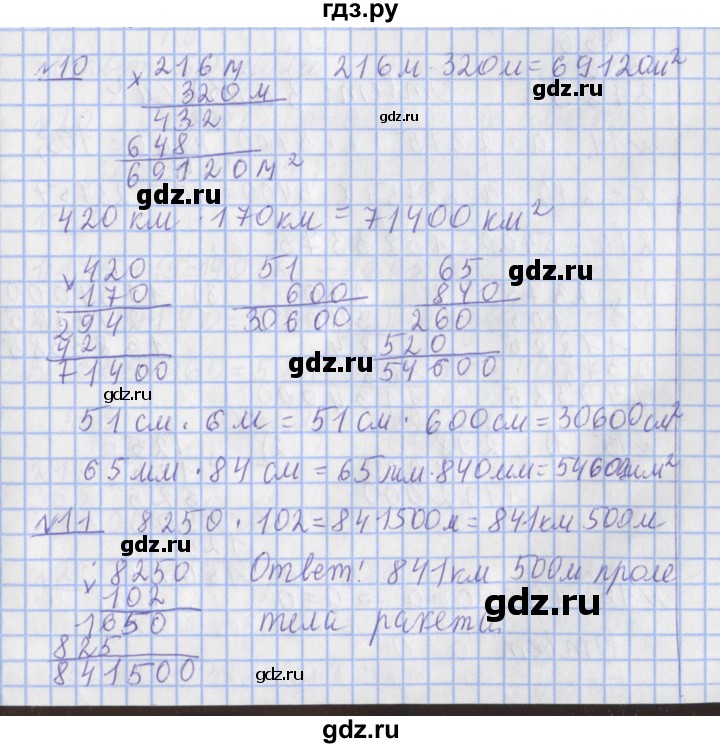 гдз.ру
№10 216 м 216 м · 320 м = 69120 м²
× 320 м
gdz.ru
432
648
69120 м²
gdz.ru
420 км · 170 км = 71400 км²
× 420 51 65
170 600 840
294 30600 260
42 520
71400 54600
gdz.ru
gdz.ru
gdz.ru
51 см · 6 м = 51 см · 600 см = 30600 см²
65 мм · 84 см = 65 мм · 840 мм = 54600 мм²
№11 8250 · 102 = 841500 м = 841 км 500 м
× 8250 Ответ: 841 км 500 м проле
102
1650 тела ракета.
825
841500
gdz.ru
gdz.ru
gdz.ru